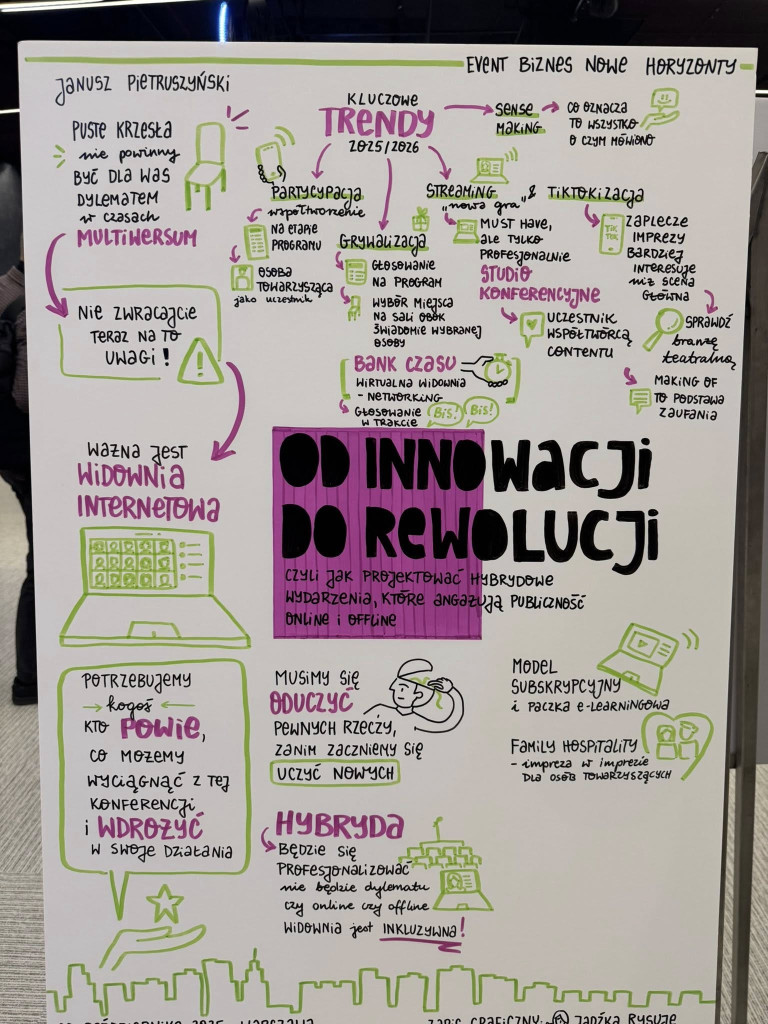 EVENT BIZNES NOWE HORYZONTY
JANUSZ PIETRUSZYŃSKI
PUSTE KRZESŁA
nie powinny
BYĆ DLA WAS
DYLEMATEM
w czasach
MULTIWERSUM
NIE ZWRACAJCIE
TERAZ NA TO
UWAGI!
WAŻNA JEST
WIDOWNIA
INTERNETOWA
KLUCZOWE
TRENDY
2025/2026
SENSE
MAKING
CO OZNACZA
TO WSZYSTKO
O CZYM MÓWIONO
PARTYCYPACJA
współtworzenie
NA ETAPIE
PROGRAMU
OSOBA
TOWARZYSZĄCA
jako uczestnik
GRYWALIZACJA
GŁOSOWANIE
NA PROGRAM
WYBÓR MIEJSCA
NA SALI OBOK
ŚWIADOMIE WYBRANEJ
OSOBY
BANK CZASU
WIRTUALNA WIDOWNIA
- NETWORKING
GŁOSOWANIE
W TRAKCIE
BIS!
BIS!
STREAMING & TIKTOKIZACJA
"nowa gra"
MUST HAVE,
ALE TYLKO
PROFESJONALNIE
STUDIO
KONFERENCYJNE
UCZESTNIK
WSPÓŁTWÓRCĄ
CONTENTU
TIK
TOK
ZAPLECZE
IMPREZY
BARDZIEJ
INTERESUJE
NIŻ SCENA
GŁÓWNA
SPRAWDŹ
branżę
teatralną
MAKING OF
TO PODSTAWA
ZAUFANIA
OD INNOWACJI
DO REWOLUCJI
CZYLI JAK PROJEKTOWAĆ HYBRYDOWE
WYDARZENIA, KTÓRE ANGAŻUJĄ PUBLICZNOŚĆ
ONLINE I OFFLINE
POTRZEBUJEMY
kogoś
KTO POWIE,
CO MOŻEMY
WYCIĄGNĄĆ Z TEJ
KONFERENCJI
i WDROŻYĆ
W SWOJE DZIAŁANIA
MUSIMY SIĘ
ODUCZYĆ
PEWNYCH RZECZY,
ZANIM ZACZNIEMY SIĘ
UCZYĆ NOWYCH
HYBRYDA
BĘDZIE SIĘ
PROFESJONALIZOWAĆ
nie będzie dylematu
czy online czy offline
WIDOWNIA jest INKLUZYWNA!
MODEL
SUBSKRYPCYJNY
i PACZKA E-LEARNINGOWA
FAMILY HOSPITALITY
- impreza w imprezie
DLA OSÓB TOWARZYSZĄCYCH
PAŹDZIERNIKA 2025, WARSZAWA
ZAPIS GRAFICZNY: JADŹKA RYSUJE